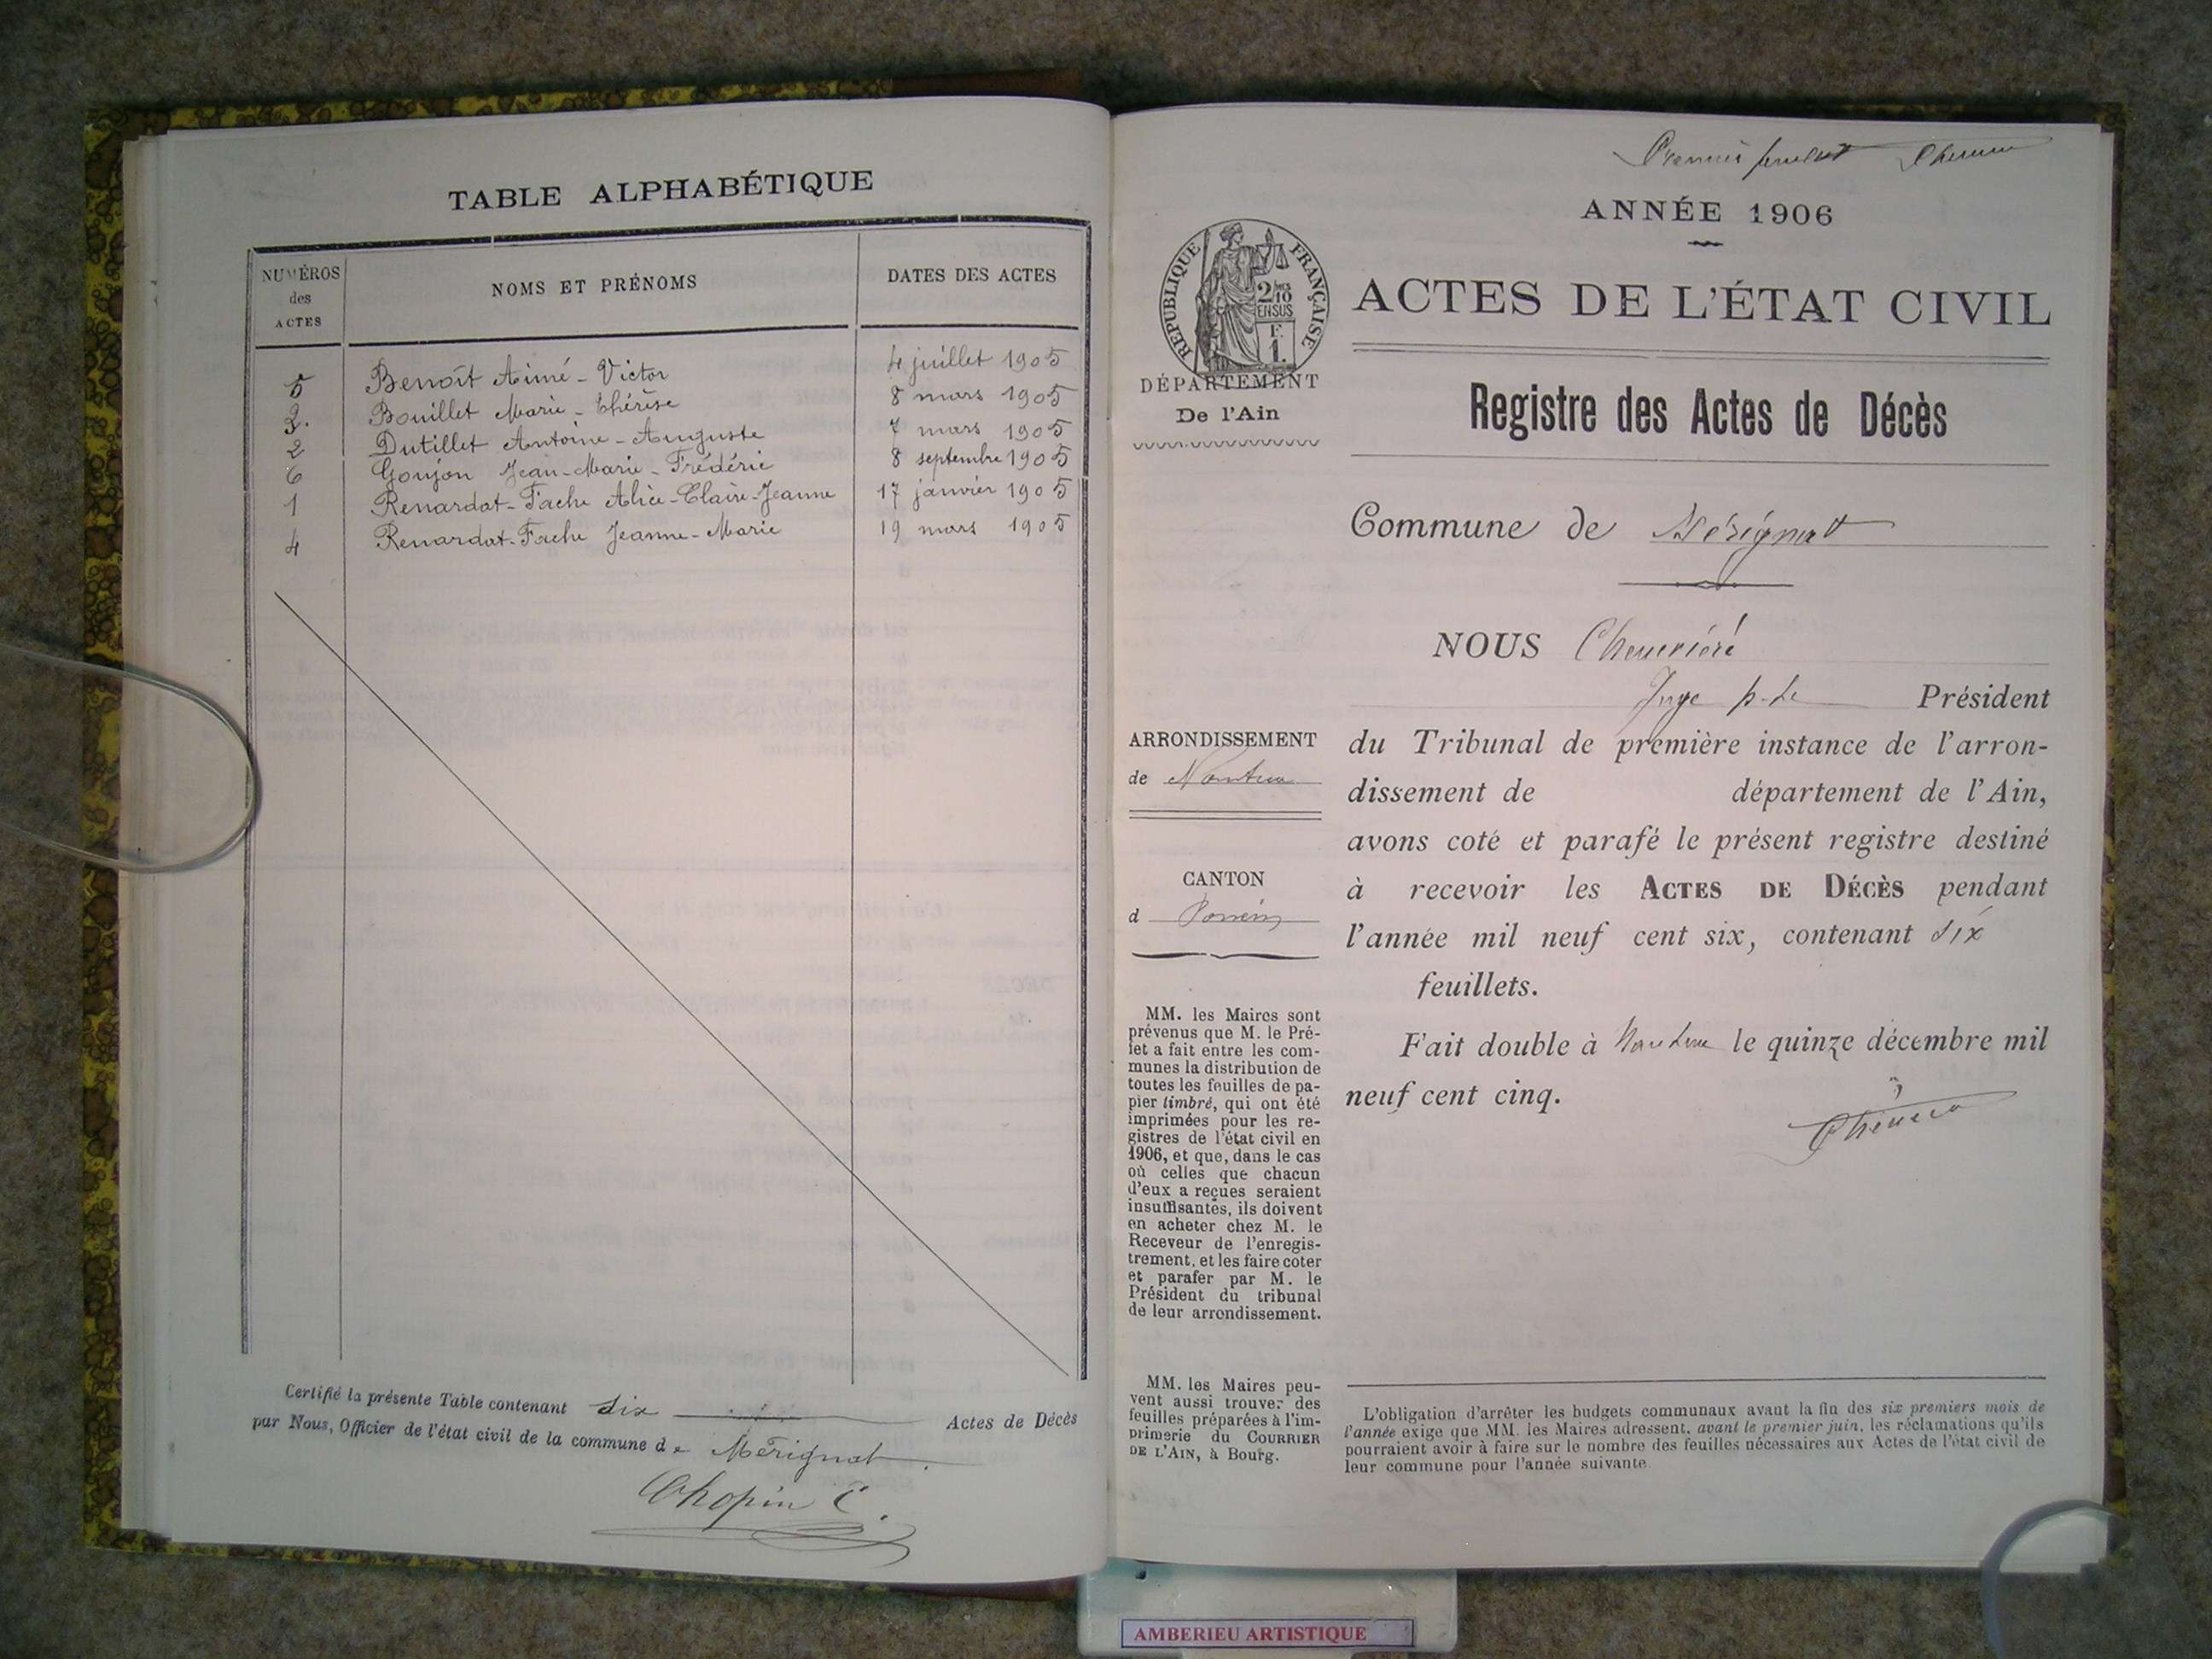 TABLE ALPHABÉTIQUE
NUMÉROS des ACTES
NOMS ET PRÉNOMS
DATES DES ACTES
5 Benoît Aimé-Victor 4 juillet 1905
3. Bouillet Marie-Thérèse 8 mars 1905
2 Dutillet Antoine-Auguste 7 mars 1905
6 Goujon Jean-Marie-Frédéric 8 septembre 1905
1 Renardat-Fache Alice-Claire-Jeanne 17 janvier 1905
4 Renardat-Fache Jeanne-Marie 19 mars 1905
Certifié la présente Table contenant six Actes de Décès
par Nous, Officier de l'état civil de la commune de Mérignat.
Chopin C.
Premier feuillet
ANNÉE 1906
RÉPUBLIQUE FRANÇAISE
2/10
EN SUS
F.
1.
ACTES DE L'ÉTAT CIVIL
DÉPARTEMENT
De l'Ain
Registre des Actes de Décès
Commune de Mérignat
NOUS
Juge p. le Président
du Tribunal de première instance de l'arron-
dissement de département de l'Ain,
avons coté et parafé le présent registre destiné
à recevoir les ACTES DE DÉCÈS pendant
l'année mil neuf cent six, contenant six
feuillets.
Fait double à Nantua le quinze décembre mil
neuf cent cinq.
ARRONDISSEMENT
de Nantua
CANTON
d Poncin
MM. les Maires sont
prévenus que M. le Pré-
fet a fait entre les com-
munes la distribution de
toutes les feuilles de pa-
pier timbré, qui ont été
imprimées pour les re-
gistres de l'état civil en
1906, et que, dans le cas
où celles que chacun
d'eux a reçues seraient
insuffisantes, ils doivent
en acheter chez M. le
Receveur de l'enregis-
trement, et les faire coter
et parafer par M. le
Président du tribunal
de leur arrondissement.
MM. les Maires peu-
vent aussi trouver des
feuilles préparées à l'im-
primerie du COURRIER
DE L'AIN, à Bourg.
L'obligation d'arrêter les budgets communaux avant la fin des six premiers mois de
l'année exige que MM. les Maires adressent, avant le premier juin, les réclamations qu'ils
pourraient avoir à faire sur le nombre des feuilles nécessaires aux Actes de l'état civil de
leur commune pour l'année suivante
AMBERIEU ARTISTIQUE